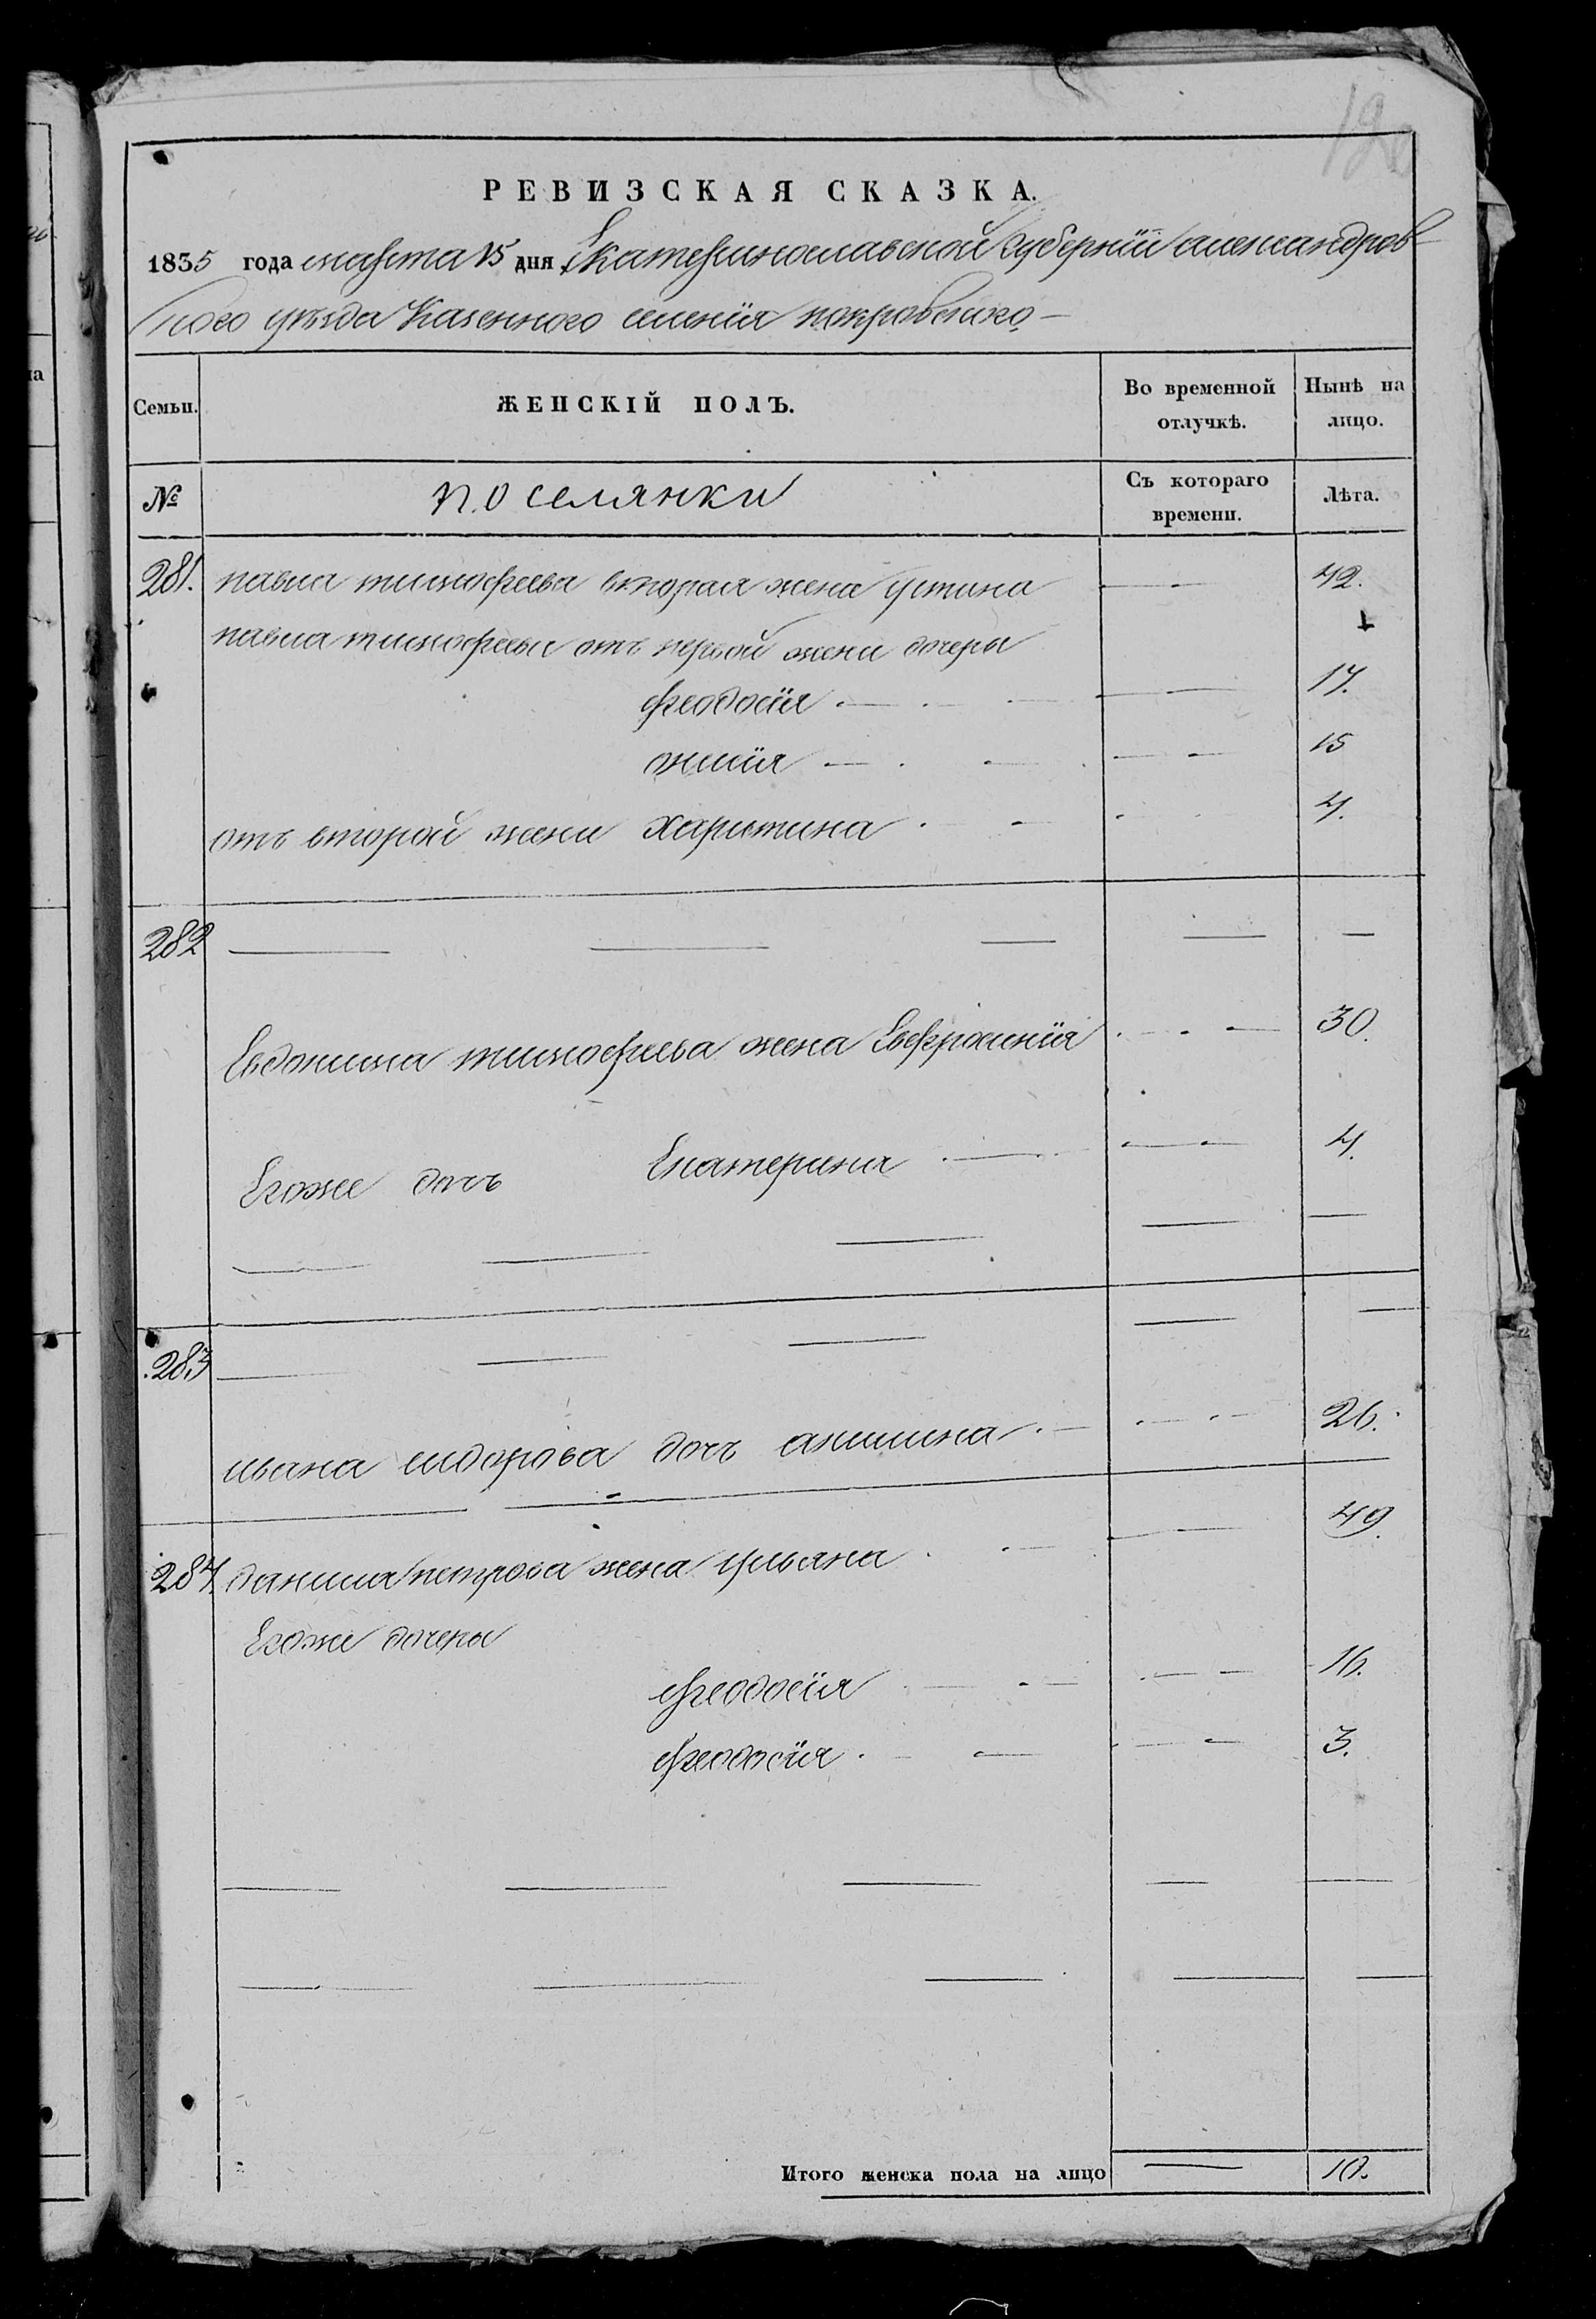 12
РЕВИЗСКАЯ СКАЗКА.
1835 года марта 15 дня Екатеринославской Губерніи александров
ского уѣзда Казенного селенія покровского
Семьи.
ЖЕНСКІЙ ПОЛЪ.
Во временной отлучкѣ.
Нынѣ на лицо.
№
поселянки
Съ котораго времени.
Лѣта.
281. павла тимофеева вторая жена устина 42.
павла тимофеева отъ первой жени дочеры
феодосія 17.
15
отъ второй жени харитина 4.
282
Евдокима тимофеева жена Евфросинія 30.
Егоже дочъ Екатерина 4.
283
ивана сидорова дочъ акилина 26.
284. данила петрова жена ульяна 49.
Егоже дочеры
феодосія 16.
феодосія 3.
Итого женска пола на лицо 10.